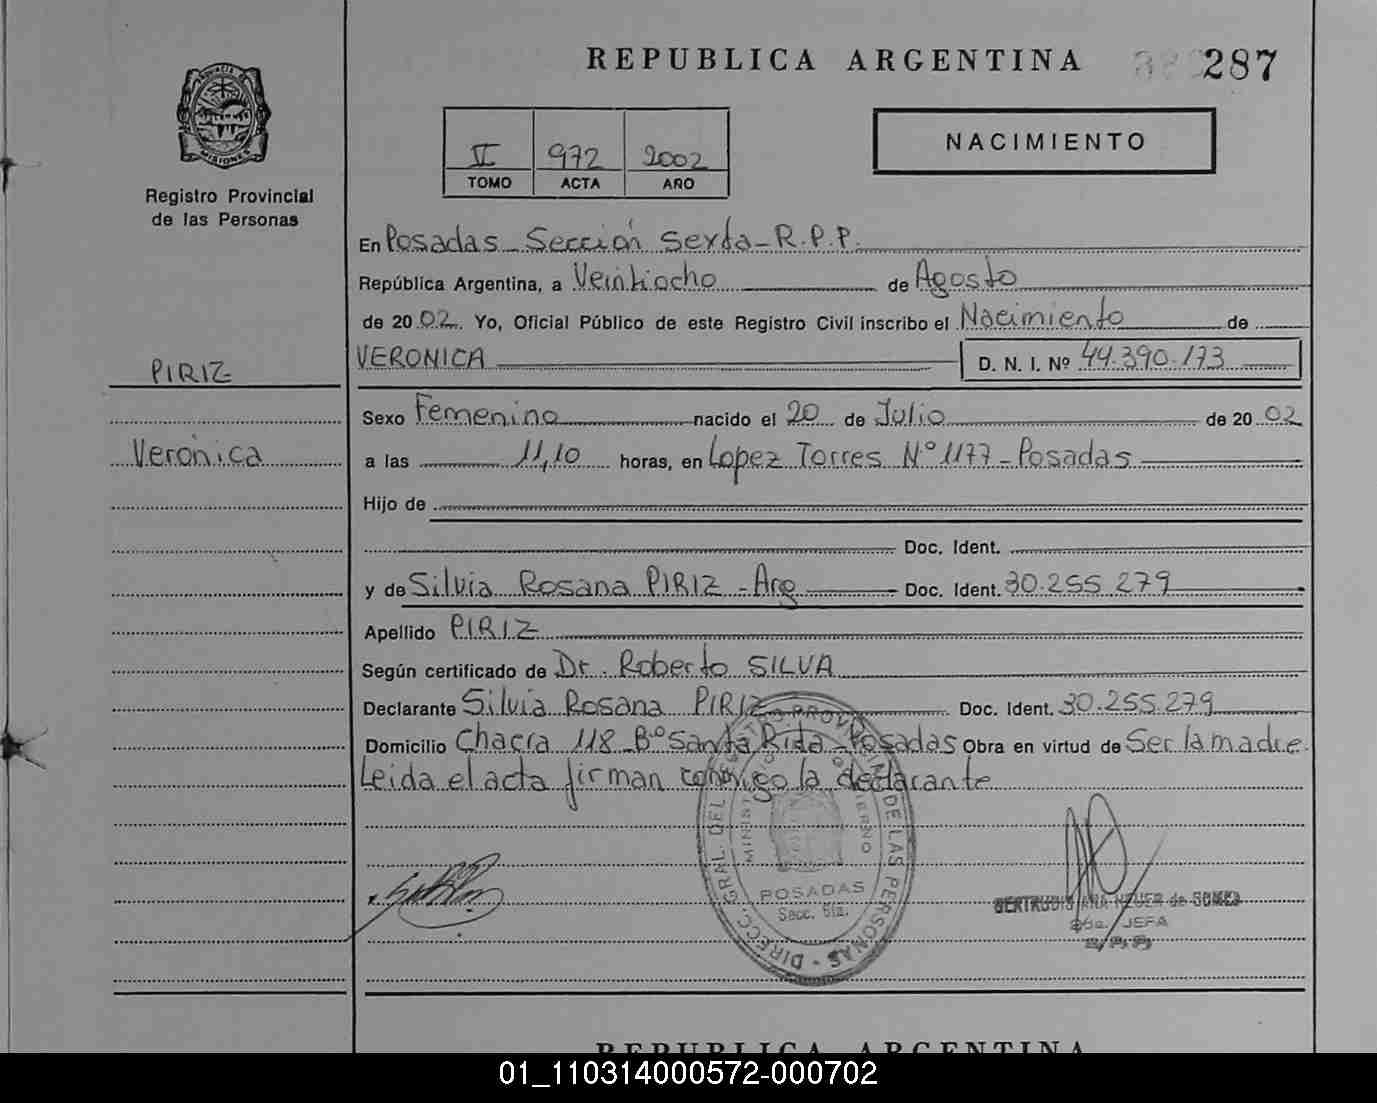 REPUBLICA ARGENTINA 287
PROVINCIA DE
MISIONES
Registro Provincial
de las Personas
II 972 2002
TOMO ACTA AÑO
NACIMIENTO
En Posadas - Sección Sexta - R.P.P.
República Argentina, a Veintiocho de Agosto
de 2002. Yo, Oficial Público de este Registro Civil inscribo el Nacimiento de
PIRIZ
VERONICA D. N. I. Nº 44.390.173
Sexo Femenino nacido el 20 de Julio de 2002
Verónica
a las 11,10 horas, en Lopez Torres Nº 1177 - Posadas
Hijo de
Doc. Ident.
y de Silvia Rosana PIRIZ - Arg Doc. Ident. 30.255.279
Apellido PIRIZ
Según certificado de Dr. Roberto SILVA
Declarante Silvia Rosana PIRIZ Doc. Ident. 30.255.279
Domicilio Chacra 118 - Bº Santa Rita - Posadas Obra en virtud de Ser la madre.
Leida el acta firman conmigo la declarante
DIRECC. GRAL. DEL REGISTRO PROVINCIAL DE LAS PERSONAS
MINISTERIO DE GOBIERNO
POSADAS
Secc. 6ta.
GERTRUDIS ANA de GOMES
JEFA
R.P.P.
REPUBLICA ARGENTINA
01_110314000572-000702